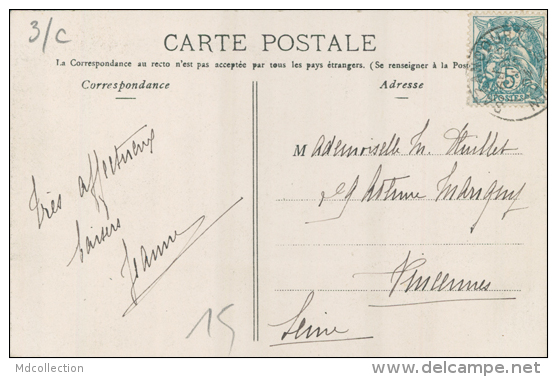 3/c
CARTE POSTALE
La Correspondance au recto n'est pas acceptée par tous les pays étrangers. (Se renseigner à la Post
Correspondance
Adresse
5
POSTES
Très affectueux
baisers
Jeanne
15
Mademoiselle M. Huillet
Marigny
Vincennes
Seine
Mdcollection
delcampe.net